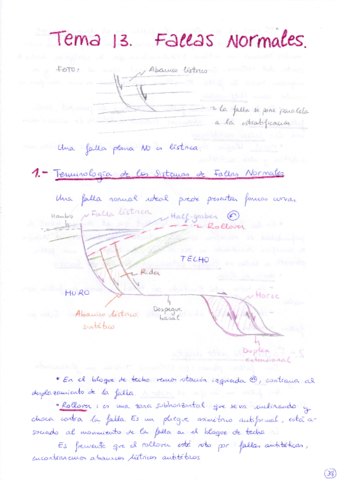 Tema 13. Fallas Normales.
FOTO:
Abanico lístrico
la falla se pone paralela
a la estratificación
Una falla plana NO es lístrica.
1.- Terminología de los Sistemas de Fallas Normales
Una falla normal ideal puede presentar formas curvas
Hombro
Falla lístrica
Half-graben
Rollover
TECHO
Rider
MURO
Horse
Abanico lístrico
sintético
Despegue
basal
Duplex
extensional
• En el bloque de techo vemos rotación izquierda, contraria al
desplazamiento de la falla
• Rollover: es una zona subhorizontal que se va inclinando y
choca contra la falla. Es un pliegue asimétrico antiformal, está a-
sociado al movimiento de la falla en el bloque de techo
Es frecuente que el rollover esté roto por fallas antitéticas,
encontraremos abanicos lístricos antitéticos